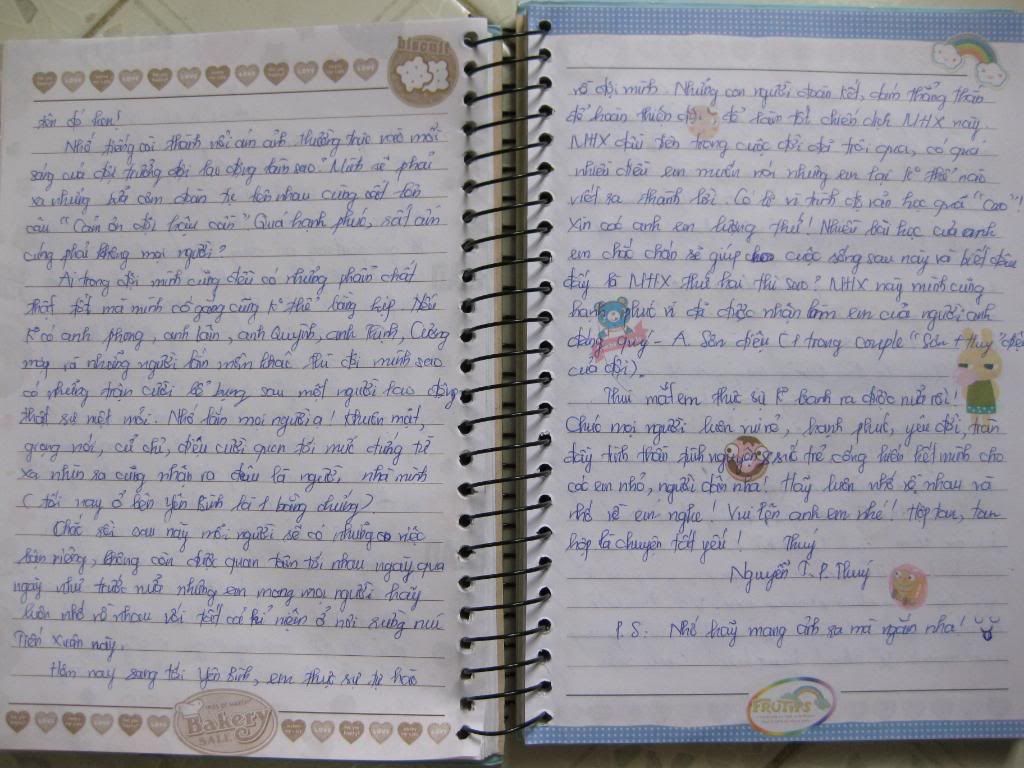 biscuit
LOVE
đến đó hơn!
Nhớ tiếng còi thánh vỏi của anh thường trực vào mỗi
sáng của đội trưởng đội lao động làm sao! Mình sẽ phải
xa những bữa cơm đoàn tụ bên nhau cùng cất lên
câu "Cảm ơn đội hậu cần". Quá hạnh phúc,
cũng phải không mọi người?
Ai trong đội mình cũng đều có những phẩm chất
thật tốt mà mình cố gắng cũng k thể bằng kịp. Nếu
k có anh phong, anh Lân, anh Quỳnh, anh Khánh, Cường
mập và những người lắm mồm khác thì đội mình sao
có những trận cười bể bụng sau một người lao động
thật sự mệt mỏi. Nhớ lắm mọi người ạ! Khuôn mặt,
giọng nói, cử chỉ, điệu cười quen tới mức đứng từ
xa nhìn ra cũng nhận ra đâu là người nhà mình
(tối nay ở bên Yên Bình là 1 bằng chứng)
Chắc rồi sau này mỗi người sẽ có những việc
bận riêng, không còn được quan tâm tới nhau ngày qua
ngày như trước nữa nhưng em mong mọi người hãy
luôn nhớ về nhau với tất cả kỉ niệm ở nơi rừng núi
Tiến Xuân này.
Hôm nay sang tới Yên Bình, em thực sự tự hào
Bakery
SALE
về đội mình. Những con người đoàn kết, dám thẳng thắn
để hoàn thiện đội, để làm tốt chiến dịch MHX này.
MHX đầu tiên trong cuộc đời đã trôi qua, có quá
nhiều điều em muốn nói nhưng em lại k thể nào
viết ra thành lời. Có lẽ vì trình độ văn học quá "Cao"!
Xin các anh em lượng thứ! Nhiều bài học của anh
em chắc chắn sẽ giúp cho cuộc sống sau này và biết đâu
đấy là MHX thứ hai thì sao? MHX này mình cũng
hạnh phúc vì đã được nhận làm em của người anh
đáng quý - A. Sơn điệu (1 trong couple "Sơn + Huy" điệu
của đội).
Thui mắt em thực sự k banh ra được nữa rồi!
Chúc mọi người luôn vui vẻ, hạnh phúc, yêu đời, tràn
đầy tinh thần tình nguyện, sức trẻ cống hiến hết mình cho
các em nhỏ, người dân nha! Hãy luôn nhớ về nhau và
nhớ về em nghe! Vui lên anh em nhé! Hợp tan, tan
hợp là chuyện tất yếu! Thuý
Nguyễn T. P. Thuý
P.S: Nhớ hãy mang ảnh ra mà ngắm nha!
FRUTIPS